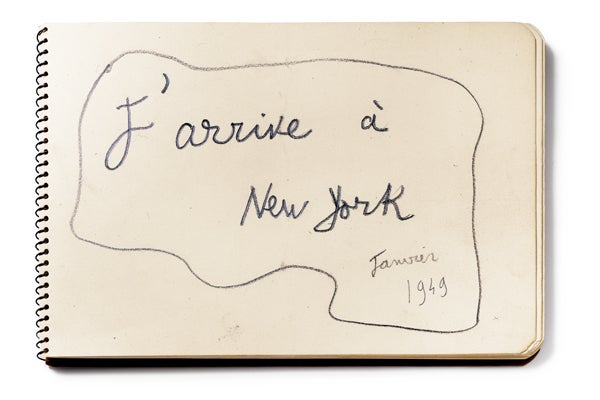 J'arrive à
New York
Janvier
1949